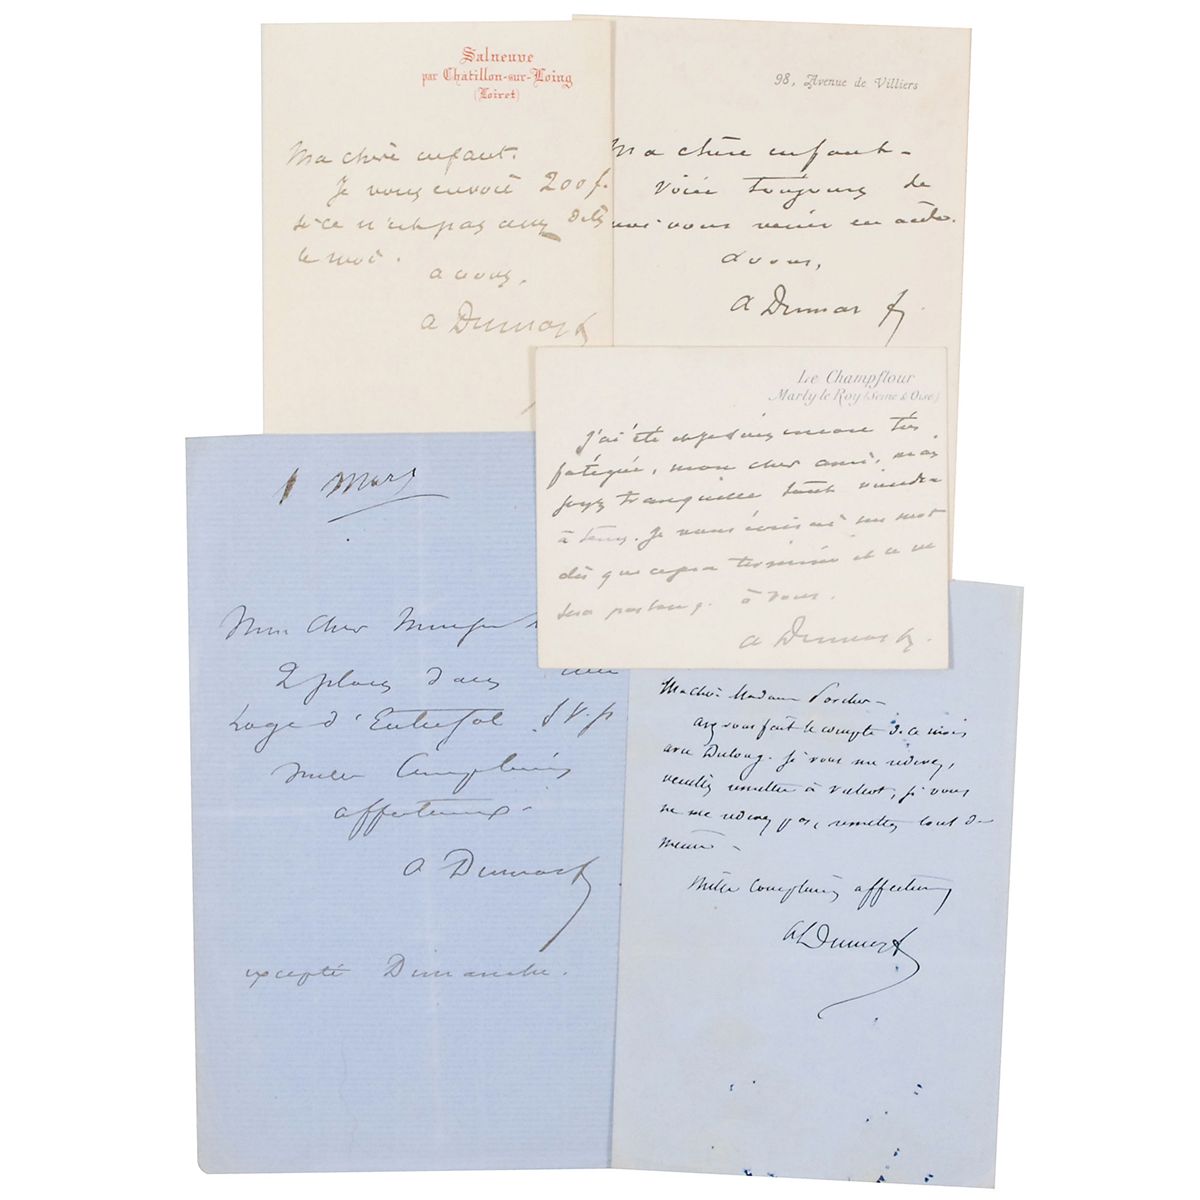 Salneuve
par Châtillon-sur-Loing
(Loiret)
Ma chère enfant.
Je vous envoie 200 f.
si ce n'est pas assez dites
le moi.
a vous,
A Dumas f
98, Avenue de Villiers
Ma chère enfant -
toujours de
vous venir en aide.
à vous,
A Dumas f
Le Champflour
Marly le Roy (Seine & Oise)
J'ai été ces jours encore très
fatigué, mon cher ami, mais
soyez tranquille tout viendra
à temps. Je vous écrirai un mot
dès que ce sera terminé et ce ne
sera pas long. à vous.
A Dumas f.
1 Mars
Mon Cher
2 places dans une
Loge d'Entresol S.V.p
Mille Compliments
affectueux
A Dumas f
excepté Dimanche.
Ma chère Madame Porcher -
avez vous fait le compte de ce mois
avec Dulong. Si vous me redevez,
veuillez remettre à Valerot, si vous
ne me redevez pas, remettez tout de
même -
Mille Compliments affectueux
A Dumas f